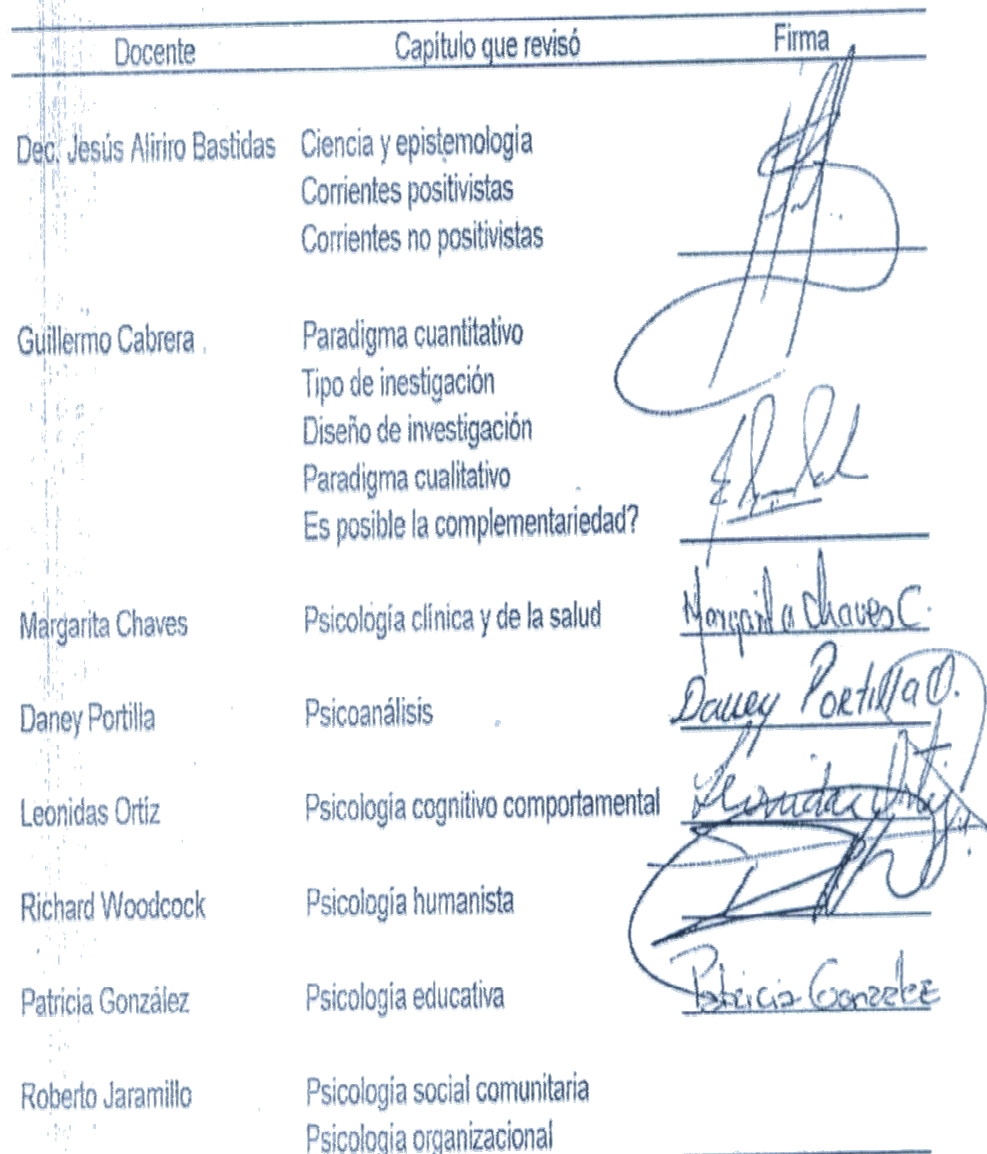 Docente Capítulo que revisó Firma
Dec. Jesús Aliriro Bastidas Ciencia y epistemología
Corrientes positivistas
Corrientes no positivistas
Guillermo Cabrera Paradigma cuantitativo
Tipo de inestigación
Diseño de investigación
Paradigma cualitativo
Es posible la complementariedad?
Margarita Chaves Psicología clínica y de la salud Margarita Chaves C.
Daney Portilla Psicoanálisis Daney Portilla O.
Leonidas Ortíz Psicología cognitivo comportamental Leonidas Ortiz
Richard Woodcock Psicología humanista
Patricia González Psicología educativa Patricia González
Roberto Jaramillo Psicología social comunitaria
Psicología organizacional